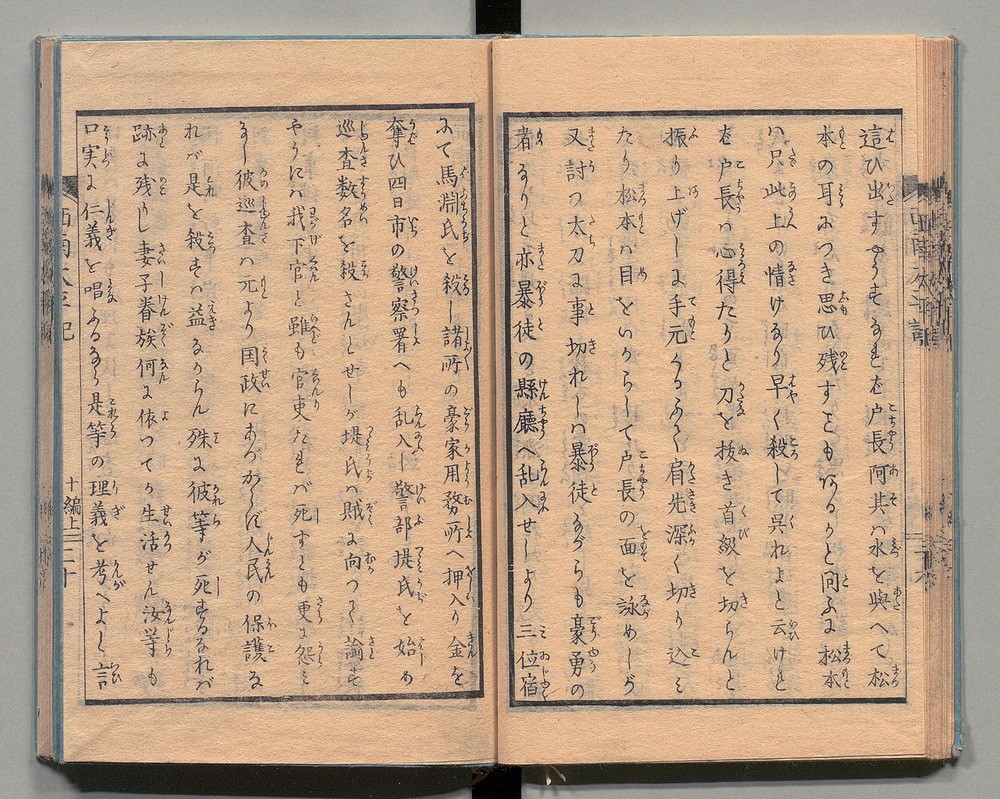 這ひ出すやうすなれど戸長阿其ハ水を與へて松
本の耳につき思ひ残すことも有るかと問ふに松本
ハ只此上の情けなり早く殺して呉れよと云けれ
ど戸長ハ心得たりと刀を抜き首級を切らんと
振り上げしに手元くるふて肩先深く切り込ミ
たり松本ハ目をいからして戸長の面を詠めしが
又討つ太刀に事切れしハ暴徒ながらも豪勇の
者なりと亦暴徒の縣廳へ乱入せしより三位宿
にて馬淵氏を殺し諸所の豪家用務所へ押入り金を
奪ひ四日市の警察署へも乱入し警部堤氏を始め
巡査数名を殺さんとせしが堤氏ハ賊に向つて諭す
やうにハ我下官と雖も官吏たれバ死すとも更に怨ミ
なし彼巡査ハ元より国政にあづからず人民の保護な
れバ是を殺すハ益なからん殊に彼等が死するなれバ
跡に残りし妻子眷族何に依つてか生活せん汝等も
口実に仁義を唱ふるなら是等の理義を考へよと言
十編上 二十